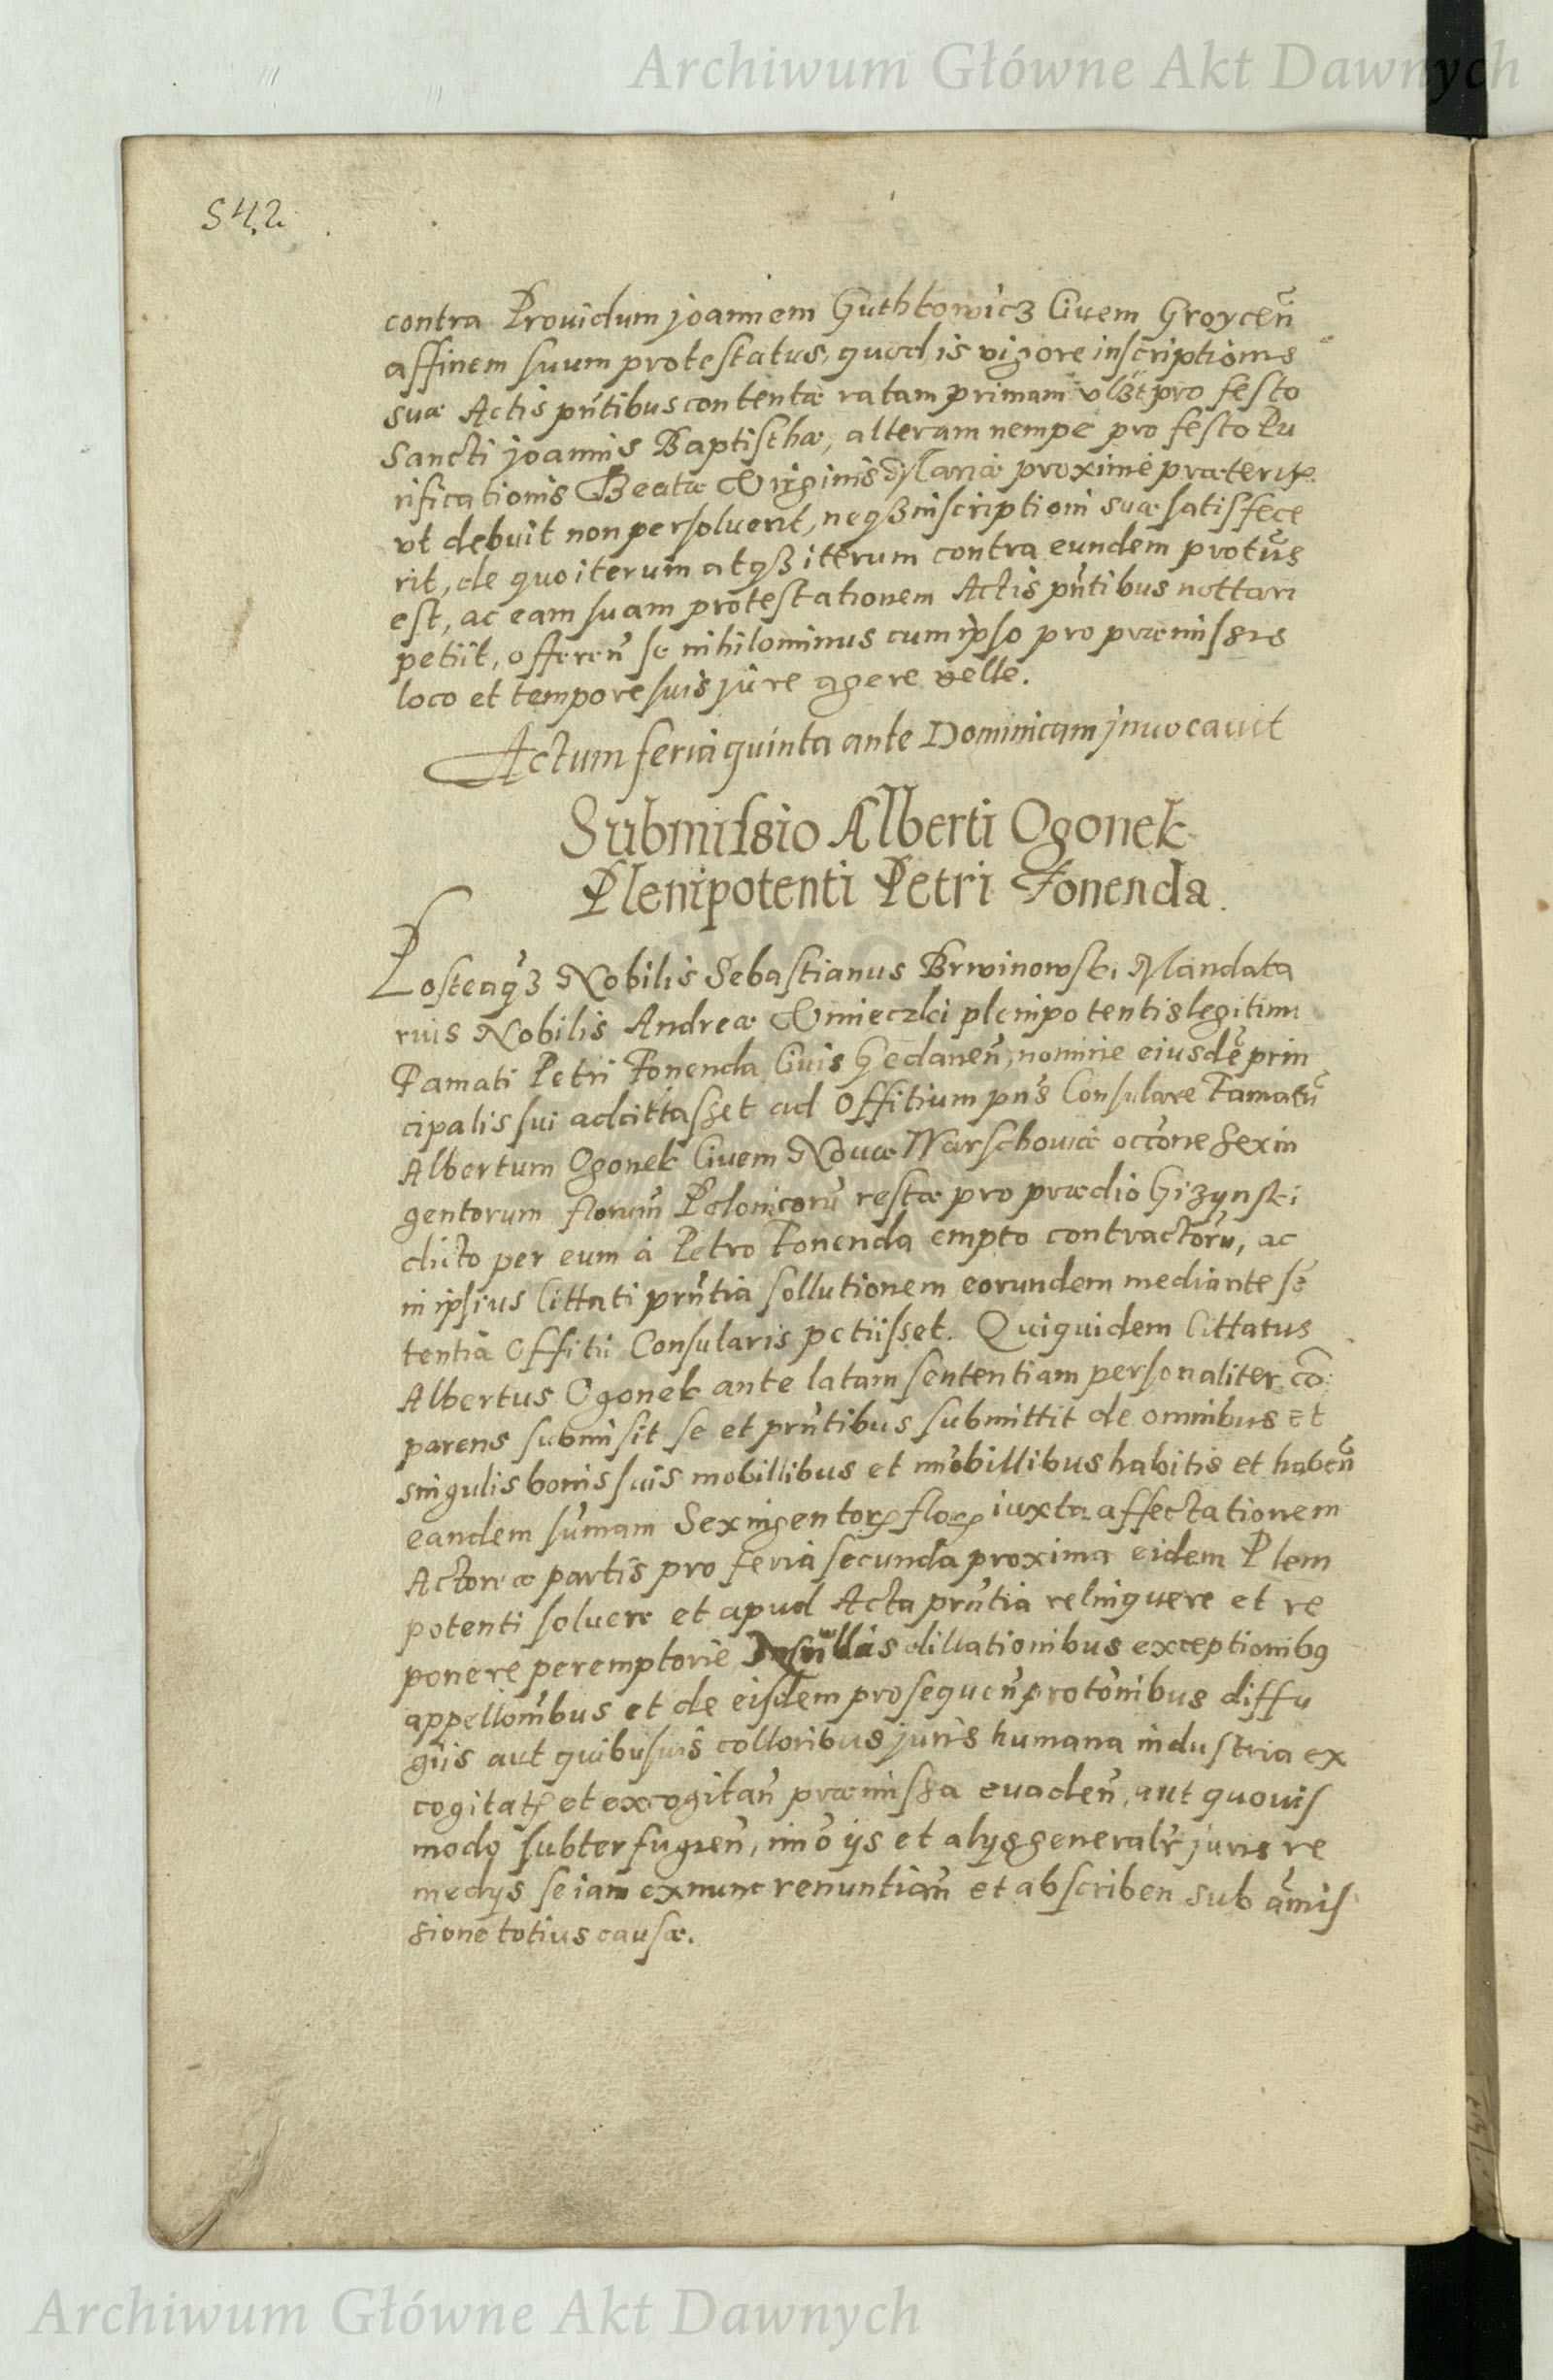 Archiwum Główne Akt Dawnych
542
contra Prouidum joannem Guthkowicz Ciuem Groyceñ
affinem suum protestatus, quod is vigore inscriptionis
suæ Actis pñtibus contentæ ratam primam vlȝt pro festo
Sancti joannis Baptisthæ, alteram nempe pro festo Pu
rificationis Beatæ Virginis Mariæ proxime præterit
vt debuit non persoluerit, neqȝ inscriptioni suæ satisfece
rit, de quo iterum atqȝ iterum contra eundem protũs
est, ac eam suam protestationem Actis pñtibus nottari
petiit, offereñ se nihilominus cum ipso pro præmissis
loco et tempore suis jure agere velle.
Actum feria quinta ante Dominicam jnuocauit
Submissio Alberti Ogonek
Plenipotenti Petri Fonenda.
Posteaqȝ Nobilis Sebastianus Brwinowski Mandata
rius Nobilis Andreæ Vmieczki plenipotentis legitimi
Famati Petri Fonenda Ciuis Gedaneñ, nomine eiusdẽ prin
cipalis sui adcittasset ad Offitium pñs Consulare Famatũ
Albertum Ogonek Ciuem Nouæ Warschouiæ occõne sexin
gentorum florum̃ Polonicorũ restæ pro prædio Gizynski
dicto per eum à Petro Fonenda empto contractorũ, ac
in ipsius Cittati prñtia sollutionem eorundem mediante sẽ
tentia Offitii Consularis petiisset. Quiquidem Cittatus
Albertus Ogonek ante latam sententiam personaliter cõ
parens submisit se et prñtibus submittit de omnibus et
singulis bonis suis mobillibus et im̃obillibus habitis et habeñ
eandem sum̃am Sexingentorꝝ florꝝ iuxta affectationem
Actoreæ partis pro feria secunda proxima eidem Pleni
potenti soluere et apud Acta prñtia relinquere et re
ponere peremptorie dillationibus exceptionibꝰ
appellom̃bus et de eisdem prosequeñ protõnibus diffu
giis aut quibusuis colloribus juris humana industria ex
cogitatꝭ et excogitañ præmissa euadeñ, aut quouis
modo subterfugieñ, im̃o ijs et alijs generalr̃ juris re
medijs se iam ex nunc renuntiañ et abscriben sub am̃is
sione totius causæ.
Archiwum Główne Akt Dawnych